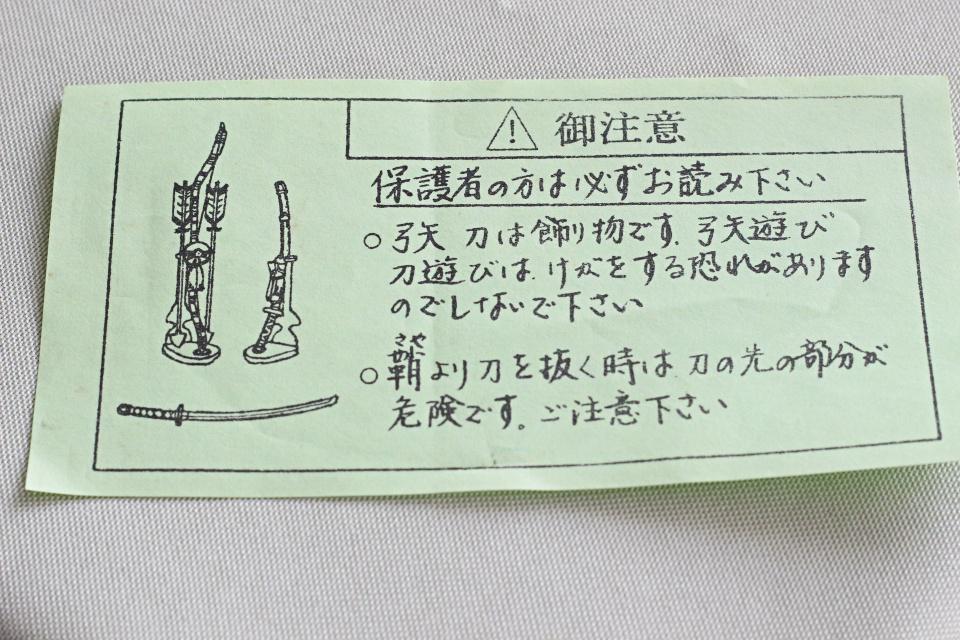 御注意
保護者の方は必ずお読み下さい
○弓矢 刀は飾り物です。弓矢遊び
刀遊びは、けがをする恐れがあります
のでしないで下さい
さや
○鞘より刀を抜く時は、刀の先の部分が
危険です。ご注意下さい